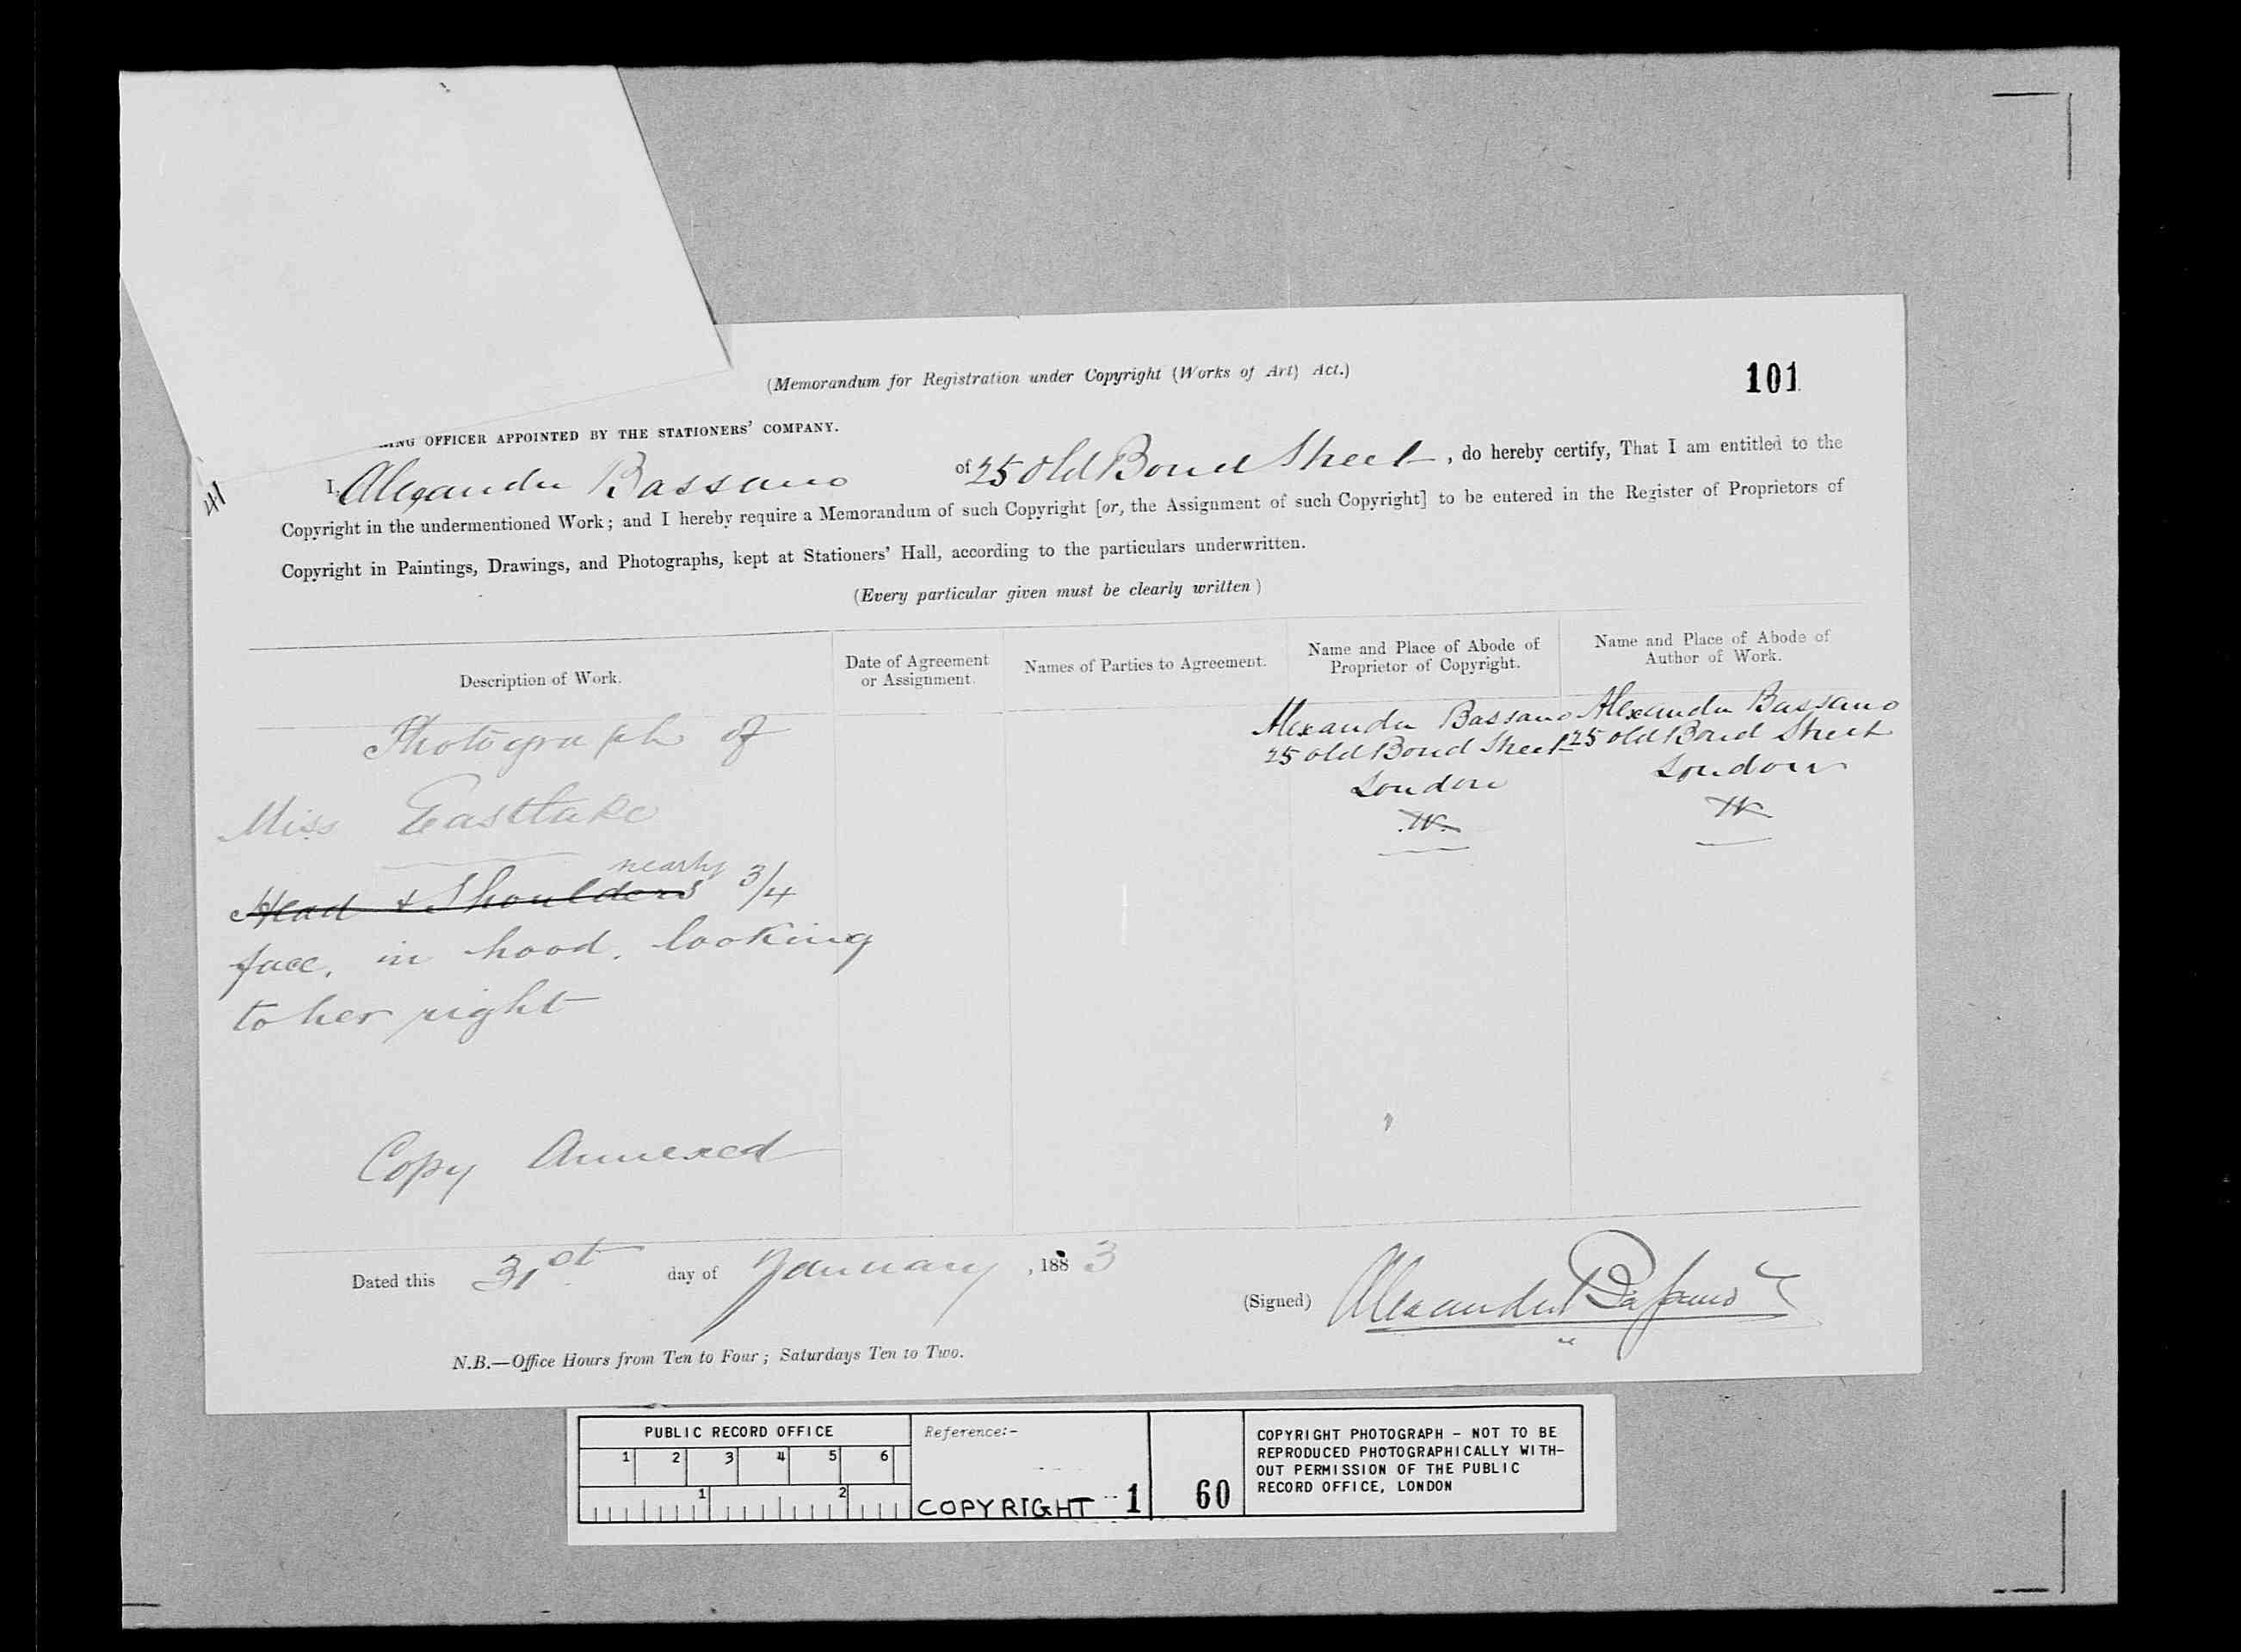 (Memorandum for Registration under Copyright (Works of Art) Act.)
101
OFFICER APPOINTED BY THE STATIONERS' COMPANY.
41
I, Alexander Bassano of 25 Old Bond Street, do hereby certify, That I am entitled to the
Copyright in the undermentioned Work; and I hereby require a Memorandum of such Copyright [or, the Assignment of such Copyright] to be entered in the Register of Proprietors of
Copyright in Paintings, Drawings, and Photographs, kept at Stationers' Hall, according to the particulars underwritten.
(Every particular given must be clearly written)
Description of Work.
Date of Agreement
or Assignment.
Names of Parties to Agreement.
Name and Place of Abode of
Proprietor of Copyright.
Name and Place of Abode of
Author of Work.
Photograph of
Miss Eastlake
nearly
Head & Shoulders 3/4
face, in hood, looking
to her right
Copy Annexed
Alexander Bassano
25 Old Bond Street
London
W
Alexander Bassano
25 Old Bond Street
London
W
Dated this 31st day of January, 1883
(Signed) Alexander Bassano
N.B.—Office Hours from Ten to Four; Saturdays Ten to Two.
PUBLIC RECORD OFFICE
1 2 3 4 5 6
1 2
Reference:-
COPYRIGHT 1 60
COPYRIGHT PHOTOGRAPH - NOT TO BE
REPRODUCED PHOTOGRAPHICALLY WITH-
OUT PERMISSION OF THE PUBLIC
RECORD OFFICE, LONDON